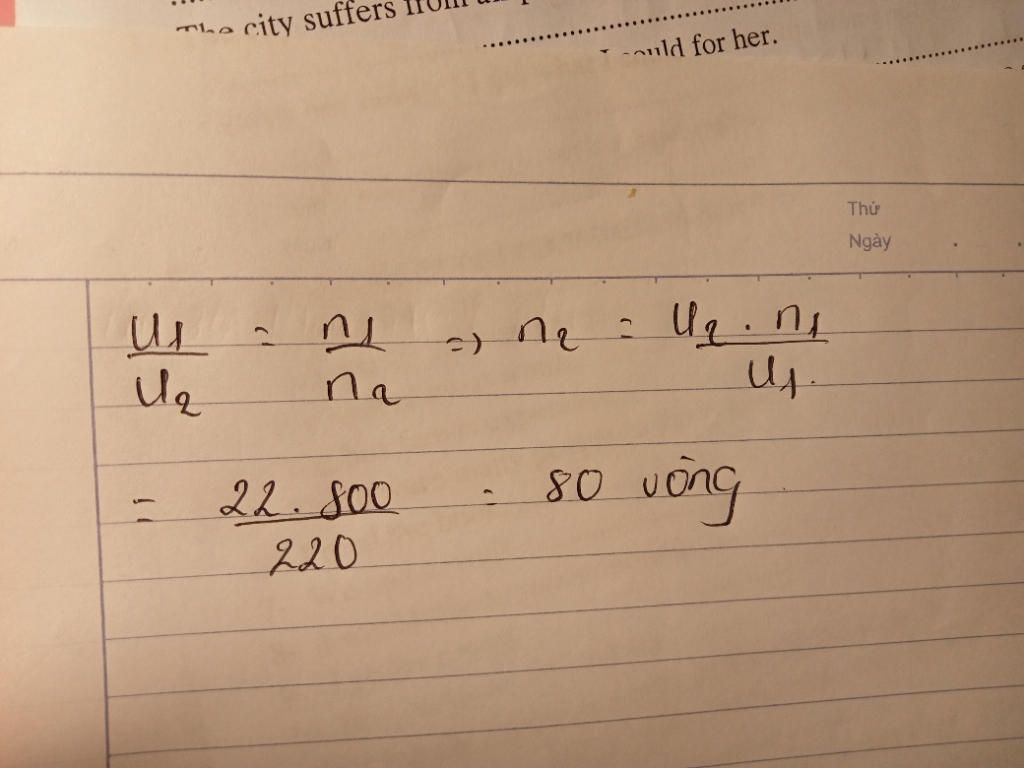 The city suffers from
I could for her.
Thứ
Ngày
U1/U2 = n1/n2 => n2 = U2 . n1/U1.
= 22 . 800/220 = 80 vòng